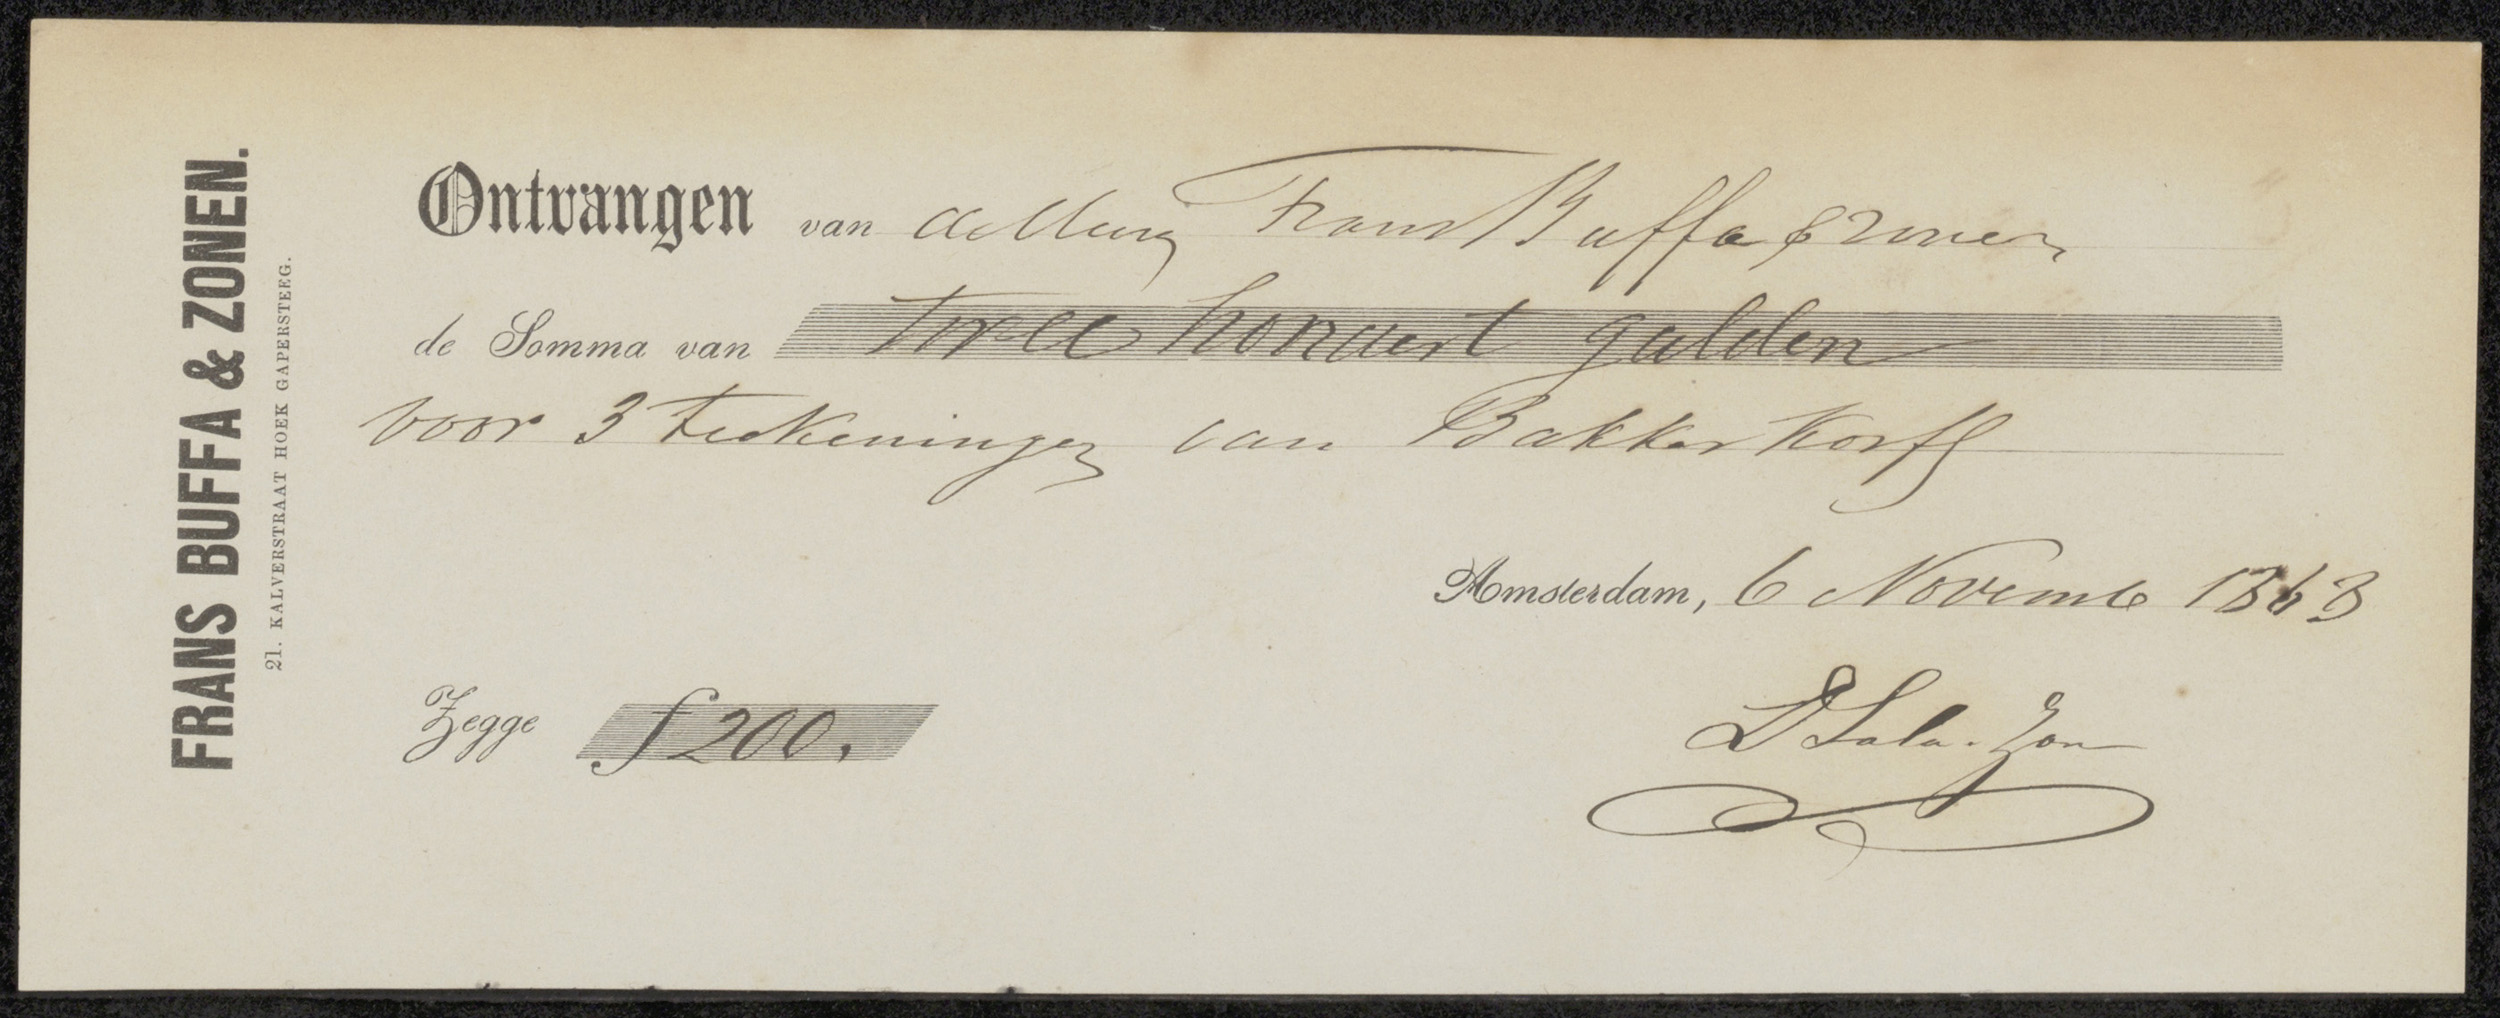 FRANS BUFFA & ZONEN.
21. KALVERSTRAAT HOEK GAPERSTEEG.
Ontvangen van de Frans Buffa & Zonen
de Somma van twee hondert gulden
voor 3 teekeningen van Bakker Korff
Amsterdam, 6 Novemb 1863
Zegge f 200.
D Sala. Zon